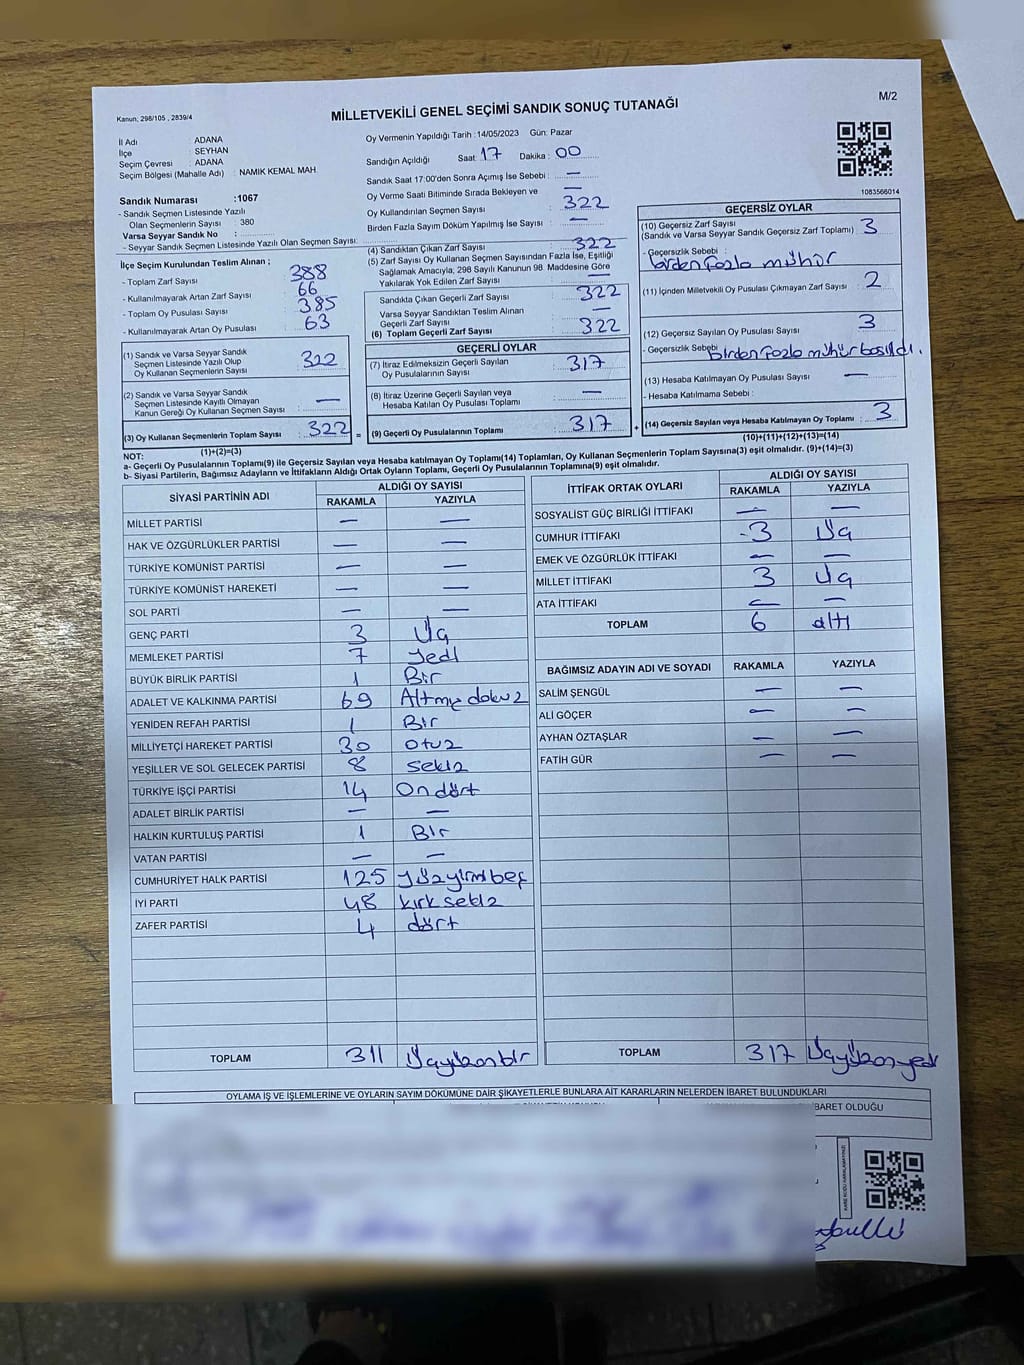 Kanun; 298/105 , 2839/4
MİLLETVEKİLİ GENEL SEÇİMİ SANDIK SONUÇ TUTANAĞI
M/2
İl Adı : ADANA
İlçe : SEYHAN
Seçim Çevresi : ADANA
Seçim Bölgesi (Mahalle Adı) : NAMIK KEMAL MAH
Sandık Numarası :1067
- Sandık Seçmen Listesinde Yazılı
Olan Seçmenlerin Sayısı : 380
Varsa Seyyar Sandık No :
- Seyyar Sandık Seçmen Listesinde Yazılı Olan Seçmen Sayısı:
Oy Vermenin Yapıldığı Tarih :14/05/2023 Gün: Pazar
Sandığın Açıldığı Saat: 17 Dakika: 00
Sandık Saat 17:00'den Sonra Açımış İse Sebebi : —
Oy Verme Saati Bitiminde Sırada Bekleyen ve —
Oy Kullandırılan Seçmen Sayısı : 322
Birden Fazla Sayım Döküm Yapılmış İse Sayısı : —
1083566014
İlçe Seçim Kurulundan Teslim Alınan ;
- Toplam Zarf Sayısı : 388
- Kullanılmayarak Artan Zarf Sayısı : 66
- Toplam Oy Pusulası Sayısı : 385
- Kullanılmayarak Artan Oy Pusulası : 63
(1) Sandık ve Varsa Seyyar Sandık
Seçmen Listesinde Yazılı Olup
Oy Kullanan Seçmenlerin Sayısı : 322
(2) Sandık ve Varsa Seyyar Sandık
Seçmen Listesinde Kayıtlı Olmayan
Kanun Gereği Oy Kullanan Seçmen Sayısı : —
(3) Oy Kullanan Seçmenlerin Toplam Sayısı : 322 =
(1)+(2)=(3)
(4) Sandıktan Çıkan Zarf Sayısı : 322
(5) Zarf Sayısı Oy Kullanan Seçmen Sayısından Fazla İse, Eşitliği
Sağlamak Amacıyla, 298 Sayılı Kanunun 98. Maddesine Göre
Yakılarak Yok Edilen Zarf Sayısı : —
Sandıkta Çıkan Geçerli Zarf Sayısı : 322
Varsa Seyyar Sandıktan Teslim Alınan
Geçerli Zarf Sayısı : —
(6) Toplam Geçerli Zarf Sayısı : 322
GEÇERLİ OYLAR
(7) İtiraz Edilmeksizin Geçerli Sayılan
Oy Pusulalarının Sayısı : 317
(8) İtiraz Üzerine Geçerli Sayılan veya
Hesaba Katılan Oy Pusulası Toplamı : —
(9) Geçerli Oy Pusulalarının Toplamı : 317 +
GEÇERSİZ OYLAR
(10) Geçersiz Zarf Sayısı
(Sandık ve Varsa Seyyar Sandık Geçersiz Zarf Toplamı) : 3
- Geçersizlik Sebebi :
birden fazla mühür
(11) İçinden Milletvekili Oy Pusulası Çıkmayan Zarf Sayısı : 2
(12) Geçersiz Sayılan Oy Pusulası Sayısı : 3
- Geçersizlik Sebebi : birden fazla mühür basıldı.
(13) Hesaba Katılmayan Oy Pusulası Sayısı : —
- Hesaba Katılmama Sebebi :
(14) Geçersiz Sayılan veya Hesaba Katılmayan Oy Toplamı : 3
(10)+(11)+(12)+(13)=(14)
NOT:
a- Geçerli Oy Pusulalarının Toplamı(9) ile Geçersiz Sayılan veya Hesaba katılmayan Oy Toplamı(14) Toplamları, Oy Kullanan Seçmenlerin Toplam Sayısına(3) eşit olmalıdır. (9)+(14)=(3)
b- Siyasi Partilerin, Bağımsız Adayların ve İttifakların Aldığı Ortak Oyların Toplamı, Geçerli Oy Pusulalarının Toplamına(9) eşit olmalıdır.
SİYASİ PARTİNİN ADI ALDIĞI OY SAYISI
RAKAMLA YAZIYLA
MİLLET PARTİSİ — —
HAK VE ÖZGÜRLÜKLER PARTİSİ — —
TÜRKİYE KOMÜNİST PARTİSİ — —
TÜRKİYE KOMÜNİST HAREKETİ — —
SOL PARTİ — —
GENÇ PARTİ 3 Üç
MEMLEKET PARTİSİ 7 yedi
BÜYÜK BİRLİK PARTİSİ 1 Bir
ADALET VE KALKINMA PARTİSİ 69 Altmış dokuz
YENİDEN REFAH PARTİSİ 1 Bir
MİLLİYETÇİ HAREKET PARTİSİ 30 otuz
YEŞİLLER VE SOL GELECEK PARTİSİ 8 sekiz
TÜRKİYE İŞÇİ PARTİSİ 14 On dört
ADALET BİRLİK PARTİSİ — —
HALKIN KURTULUŞ PARTİSİ 1 Bir
VATAN PARTİSİ — —
CUMHURİYET HALK PARTİSİ 125 yüzyirmibeş
İYİ PARTİ 48 kırk sekiz
ZAFER PARTİSİ 4 dört
TOPLAM 311 Üçyüzonbir
İTTİFAK ORTAK OYLARI ALDIĞI OY SAYISI
RAKAMLA YAZIYLA
SOSYALİST GÜÇ BİRLİĞİ İTTİFAKI — —
CUMHUR İTTİFAKI 3 Üç
EMEK VE ÖZGÜRLÜK İTTİFAKI — —
MİLLET İTTİFAKI 3 Üç
ATA İTTİFAKI — —
TOPLAM 6 altı
BAĞIMSIZ ADAYIN ADI VE SOYADI RAKAMLA YAZIYLA
SALİM ŞENGÜL — —
ALİ GÖÇER — —
AYHAN ÖZTAŞLAR — —
FATİH GÜR — —
TOPLAM 317 Üçyüzonyedi
OYLAMA İŞ VE İŞLEMLERİNE VE OYLARIN SAYIM DÖKÜMÜNE DAİR ŞİKAYETLERLE BUNLARA AİT KARARLARIN NELERDEN İBARET BULUNDUKLARI
BARET OLDUĞU